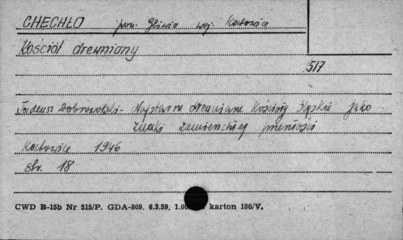 CHECHŁO pow. Gliwice woj. Katowice
Kościół drewniany
517
Tadeusz Dobrowolski - Najstarsze drewniane Kościoły Śląskie jako
znaki
Katowice 1946
str. 18
CWD B-15b Nr 515/P. GDA-809. 6.3.59, 1.00 karton 180/V.